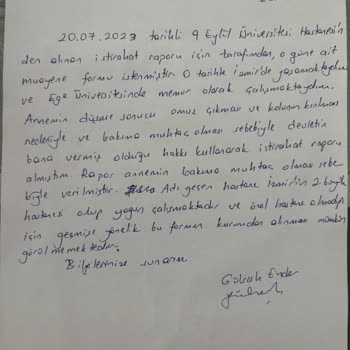 20.07.2023 tarihli 9 Eylül Üniversitesi Hastanesin
den alınan istirahat raporu için tarafımdan, o güne ait
muayene formu istenmiştir. O tarihte İzmir'de yaşamaktaydım
ve Ege Üniversitesinde memur olarak çalışmaktaydım.
Annemin düşme sonucu omuz çıkması ve kolunun kırılması
nedeniyle ve bakıma muhtaç olması sebebiyle devletin
bana vermiş olduğu hakkı kullanarak istirahat raporu
almıştım. Rapor annemin bakıma muhtaç olması sebe
biyle verilmiştir. Adı geçen hastane İzmir'in 2. büyük
hastanesi olup yoğun çalışmaktadır ve özel hastane olmadığı
için geçmişe yönelik bu formun kurumdan alınması mümkün
görülmemektedir.
Bilgilerinize sunarım
Gökah Ender